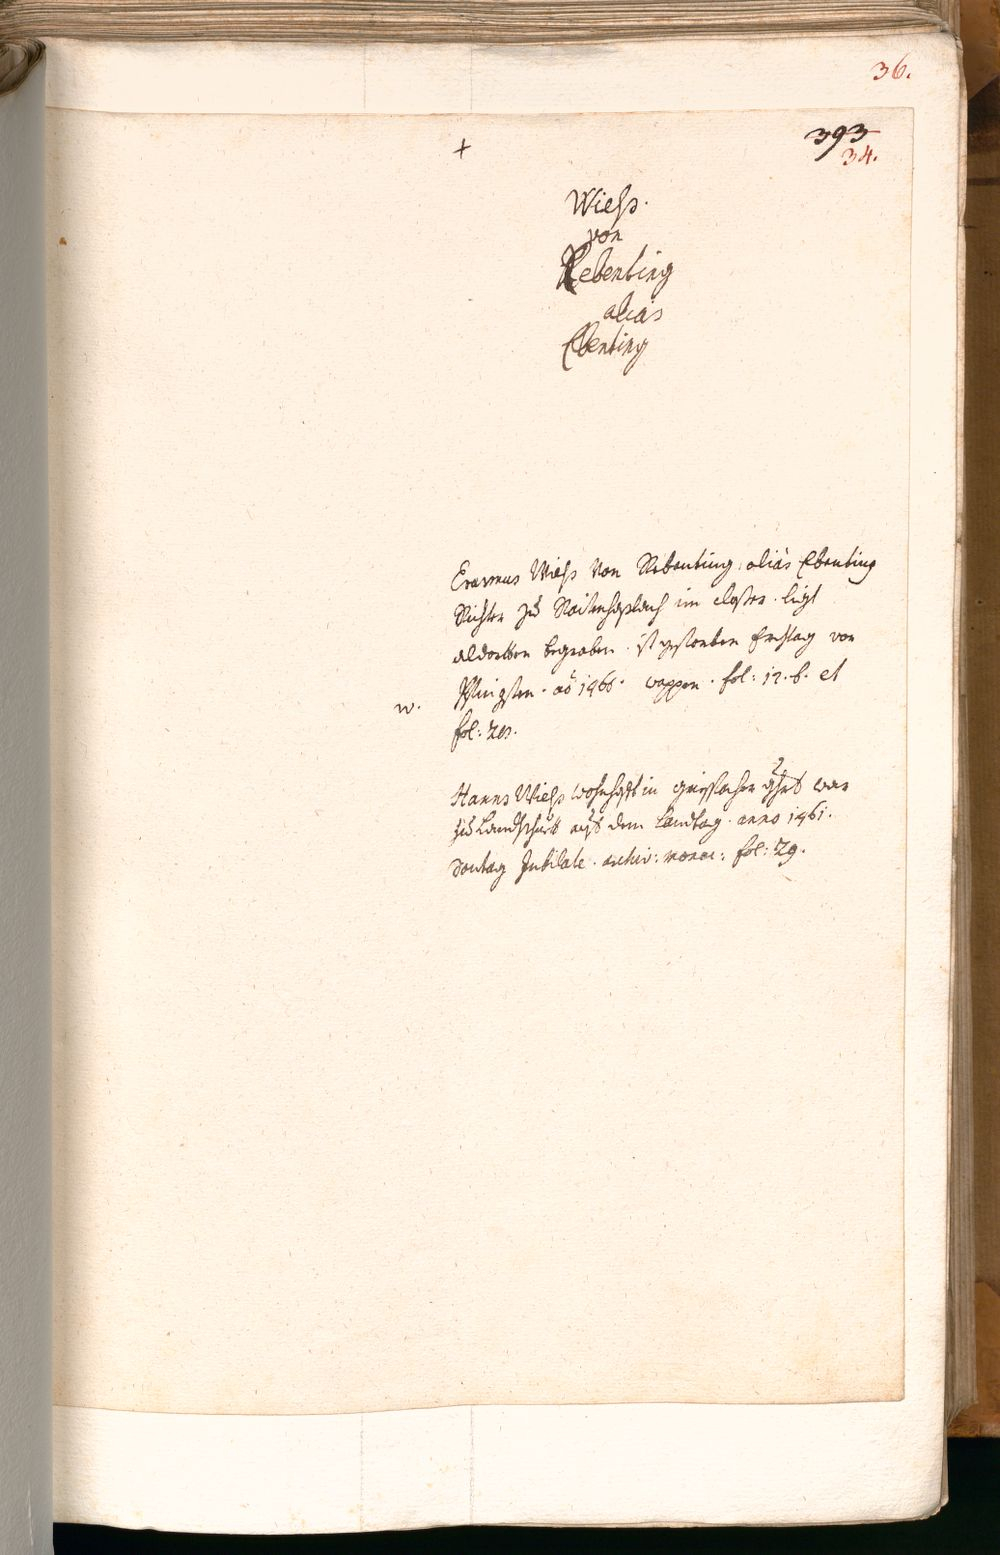 36.
+
393
34.
Wiess.
von
Rebenting
alias
Ebenting
Erasmus Wiess von Rebenting. alias Ebenting
Richter zu Raitenhaslach im closter. ligt
aldortten begraben. ist gestorben freytag vor
Pfingsten. aõ 1466. wappen. fol: 12. b. et
w.
fol: 20.
Hanns Wiess wohnhafft in griespacher war
zu Landshuett auf dem Landtag. anno 1461.
Sontag Jubilate. archiv: monac: fol: 29.